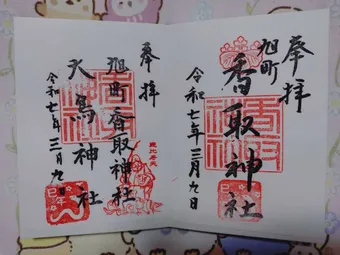 奉拝
旭町
香取神社
令和七年三月九日
巳年
奉拝
旭町香取神社
大鳥神社
令和七年三月九日
巳年